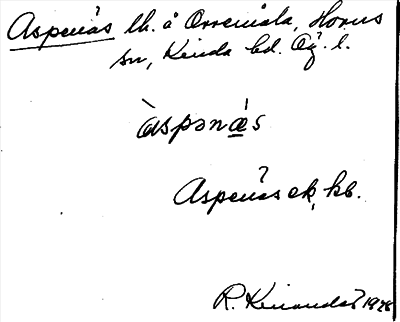 Aspenäs lh. å Orremåla, Horns
sn, Kinda hd. Ög. l.
àspənǽs
Aspenäs ek. kb.
R. 1928